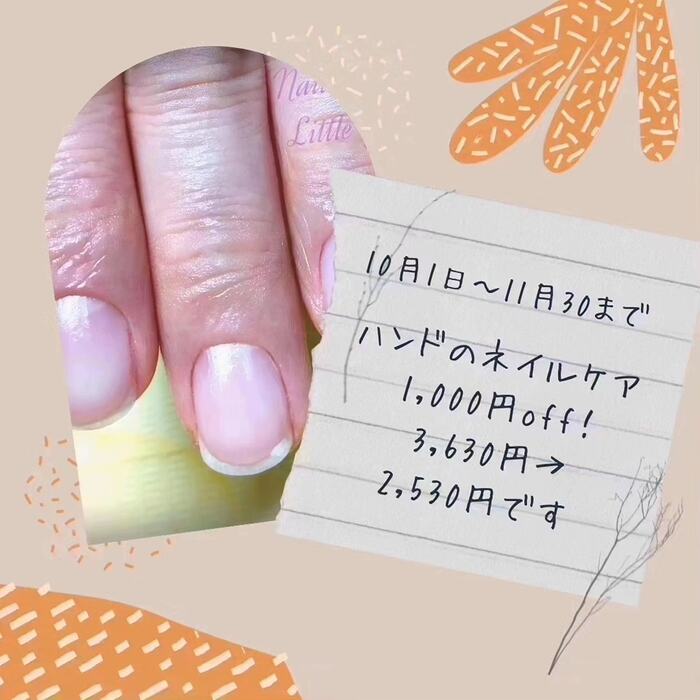 Little
10月1日〜11月30まで
ハンドのネイルケア
1,000円off!
3,630円→
2,530円です